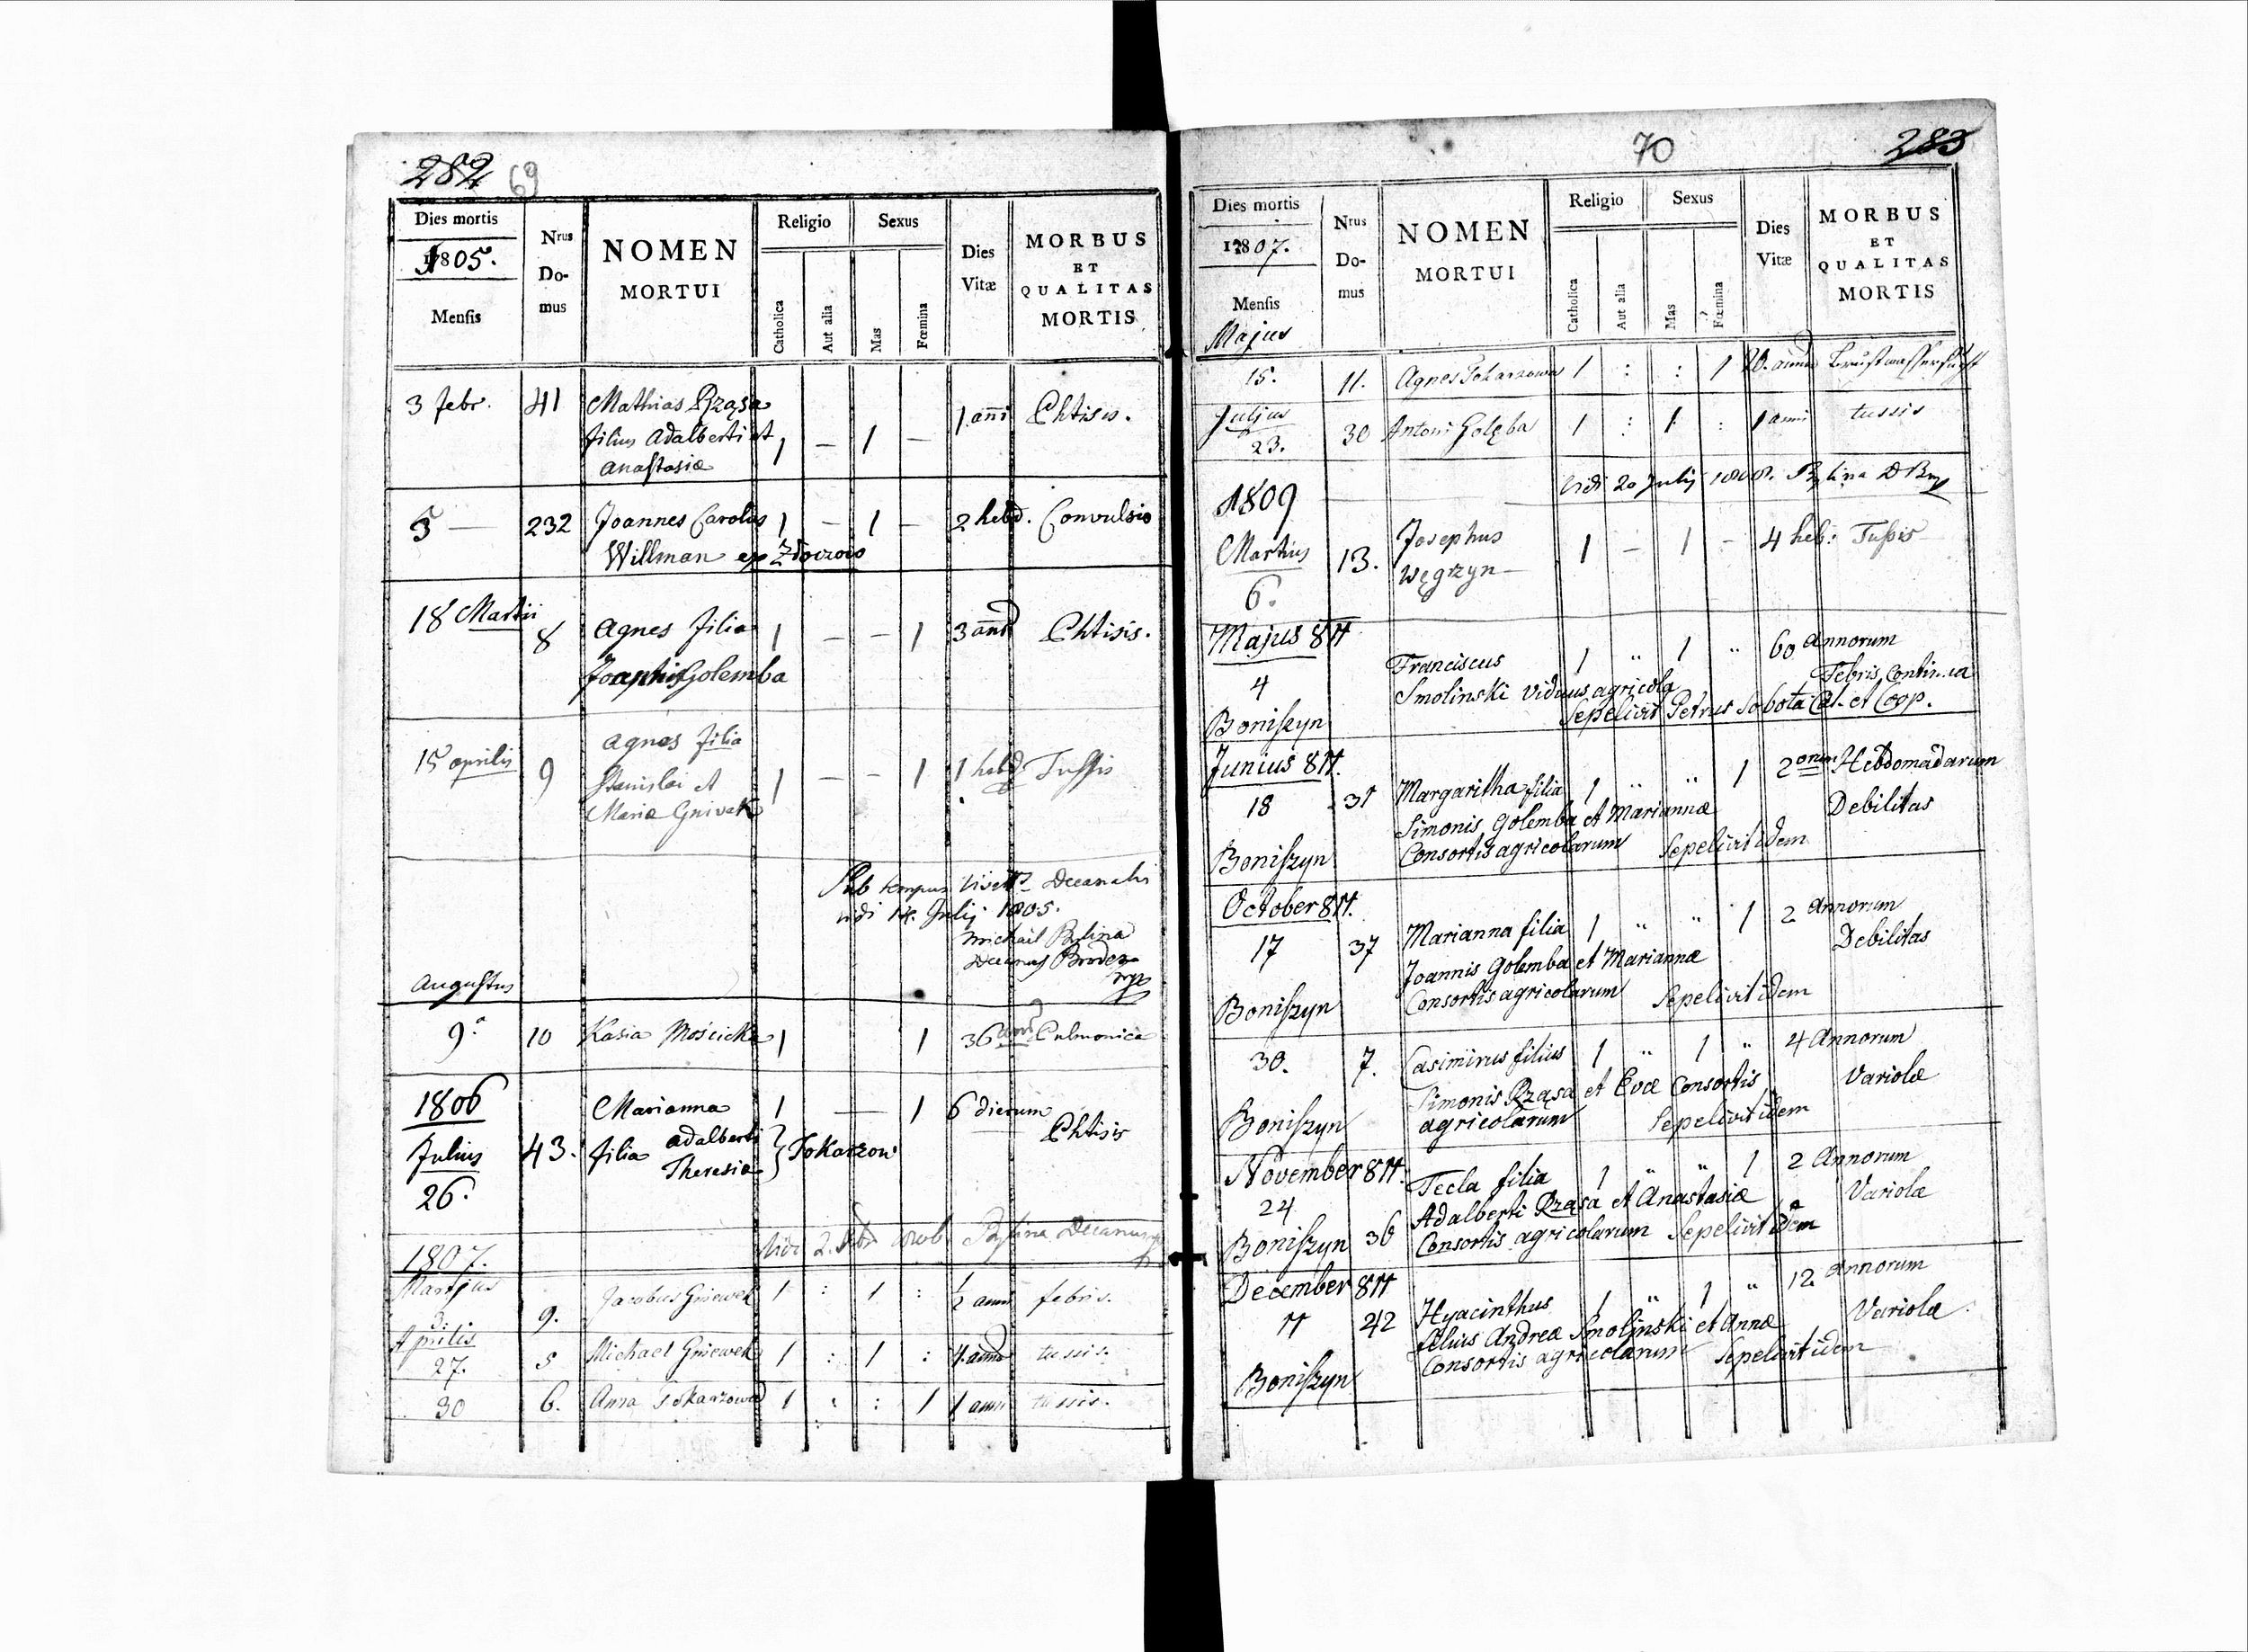 282 69
Dies mortis
1805.
Mensis
Nrus
Do-
mus
NOMEN
MORTUI
Religio
Catholica
Aut alia
Sexus
Mas
Fœmina
Dies
Vitæ
MORBUS
ET
QUALITAS
MORTIS
3 febr. 41 Mathias Rząsa
filius Adalberti et 1 – 1 – 1 anni Phtisis.
Anastasiæ
5 — 232 Joannes Carolus 1 – 1 – 2 hebd. Convulsio
Willman ex Złoczow
18 Martii 8 Agnes filia 1 – – 1 3 anni Phtisis.
Golemba
15 aprilis 9 Agnes filia
Stanislai et 1 – – 1 1 hebd Tussis
Mariæ Gniwek
Sub tempus Decanalis
vidi 14. Julij 1805.
Michael Bylina
Decanus
Augustus
9ª 10 Kasia Mościcka 1 1 36 anni Pulmonica
1806
Julius
26.
43. Marianna 1 — 1 6 dierum
filia Adalberti } Tokarzow Phtisis
Theresiæ
Vidi 2. 1806 Bylina Decanus
1807.
Martjus
3. 9. Jacobus Gniewek 1 : 1 : ½ anni febris.
Aprilis
27. 5 Michael Gniewek 1 : 1 : 4 anno tussis.
30 6. Anna Tokarzowa 1 : : 1 1 anni tussis.
70 283
Dies mortis
1807.
Mensis
Majus
Nrus
Do-
mus
NOMEN
MORTUI
Religio
Catholica
Aut alia
Sexus
Mas
Fœmina
Dies
Vitæ
MORBUS
ET
QUALITAS
MORTIS
15. 11. Agnes Tokarzowa 1 : : 1 Brustwassersucht
Juljus
23. 30 Antoni Golęba 1 : 1 : 1 anni tussis
Vidi 20 Julij 1808. Bylina
1809
Martius
6.
13. Josephus
Węgrzyn 1 – 1 – 4 heb: Tussis
Majus 811
4
Boniszyn
Franciscus 1 " 1 " 60 Annorum
Smolinski viduus agricola Febris Continua
Sepelivit Petrus Sobota Cal. et Coop.
Junius 811.
18 31 Margaritha filia 1 " " 1 2orum Hebdomadarum
Simonis Golemba et Mariannæ Debilitas
Consortis agricolarum Sepelivit idem
Boniszyn
October 811.
17 37 Marianna filia 1 " " 1 2 Annorum
Joannis Golemba et Mariannæ Debilitas
Consortis agricolarum Sepelivit idem
Boniszyn
30. 7. Casimirus filius 1 " 1 " 4 Annorum
Simonis Rząsa et Evæ Consortis Variolæ
agricolarum Sepelivit idem
Boniszyn
November 811.
24 Tecla filia 1 " " 1 2 Annorum
Adalberti Rząsa et Anastasiæ Variolæ
Boniszyn 36 Consortis agricolarum Sepelivit idem
December 811
11 42 Hyacinthus 1 " 1 " 12 Annorum
filius Andreæ Smolinski et Annæ Variolæ
Consortis agricolarum Sepelivit idem
Boniszyn